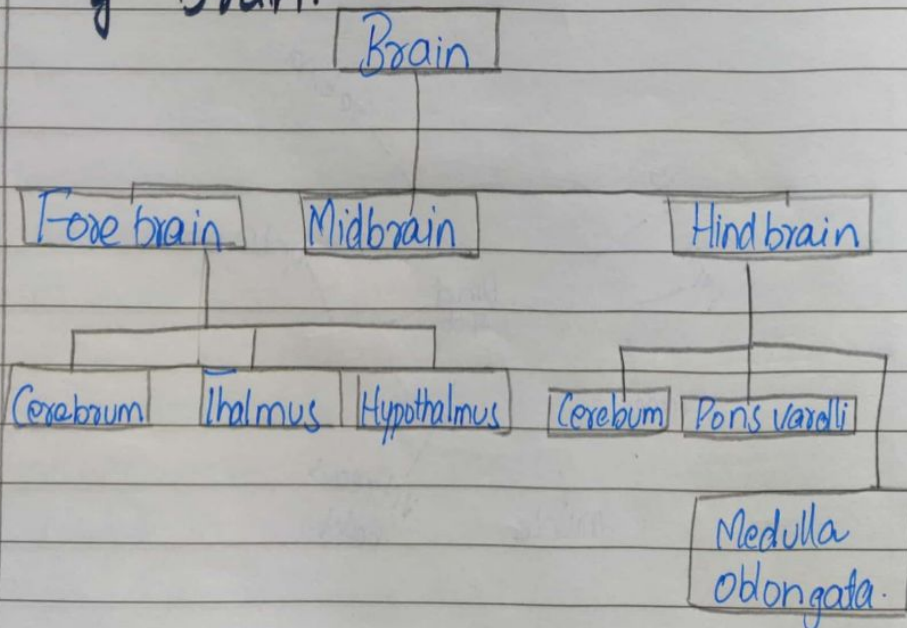 Brain.
Brain
Fore brain Midbrain Hind brain
Cerebrum Thalmus Hypothalmus Cerebum Pons varolli
Medulla
oblongata.